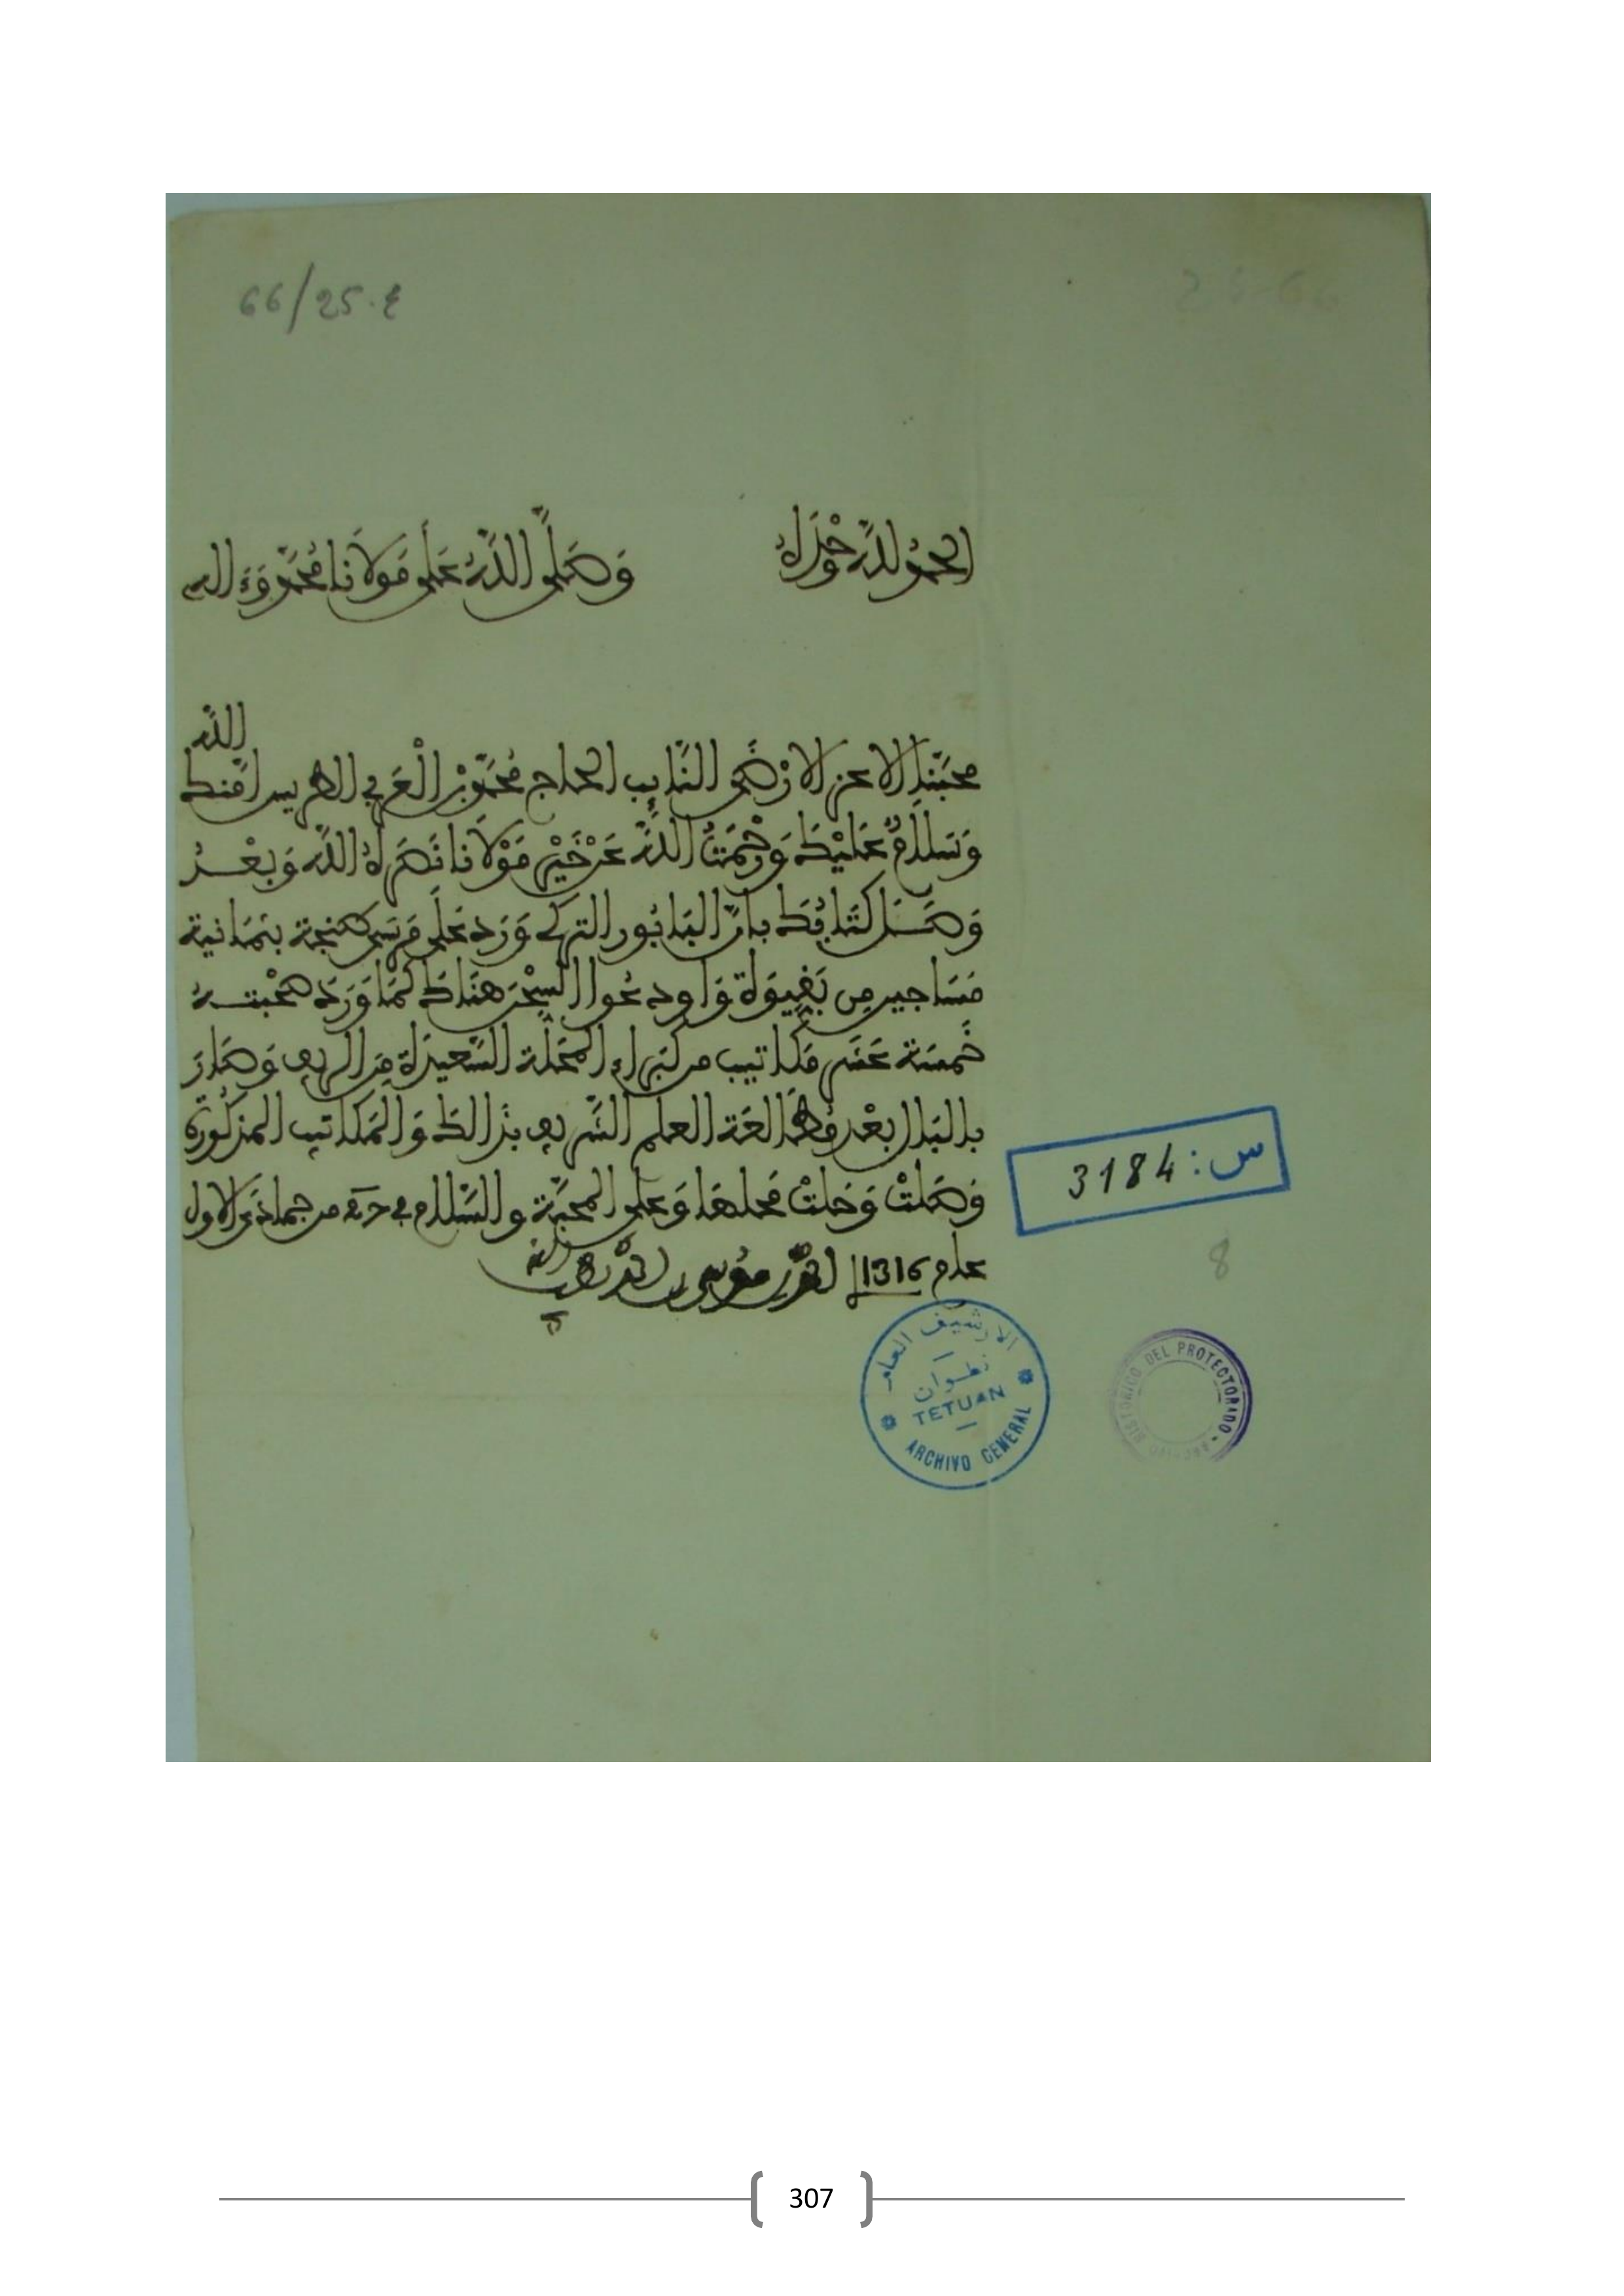 66/25.ع
25-66
الحمد لله وحده وصلى الله على مولانا محمد وءاله
محبنا الاعز الارضى النايب الحاج محمد بن العربي الطريس امنك الله
وسلام عليك ورحمت الله عن خير مولانا نصره الله وبعد
وصل كتابك بان البابور التركي ورد على مرسى طنجة بثمانية
مساجين من بقيوة واودعوا السجن هناك كما ورد صحبته
خمسة عشر مكاتيب من كبراء المحلة السعيدة من الريف وصار
بالبال بعد مطالعة العلم الشريف بذالك والمكاتيب المذكورة
وصلت ودخلت محلها وعلى المحبة والسلام في من جمادى الاول
عام 1316 احمد بن موسى بن احمد لطف الله به
س: 3184
8
الارشيف العام
تطوان
TETUAN
ARCHIVO GENERAL
HISTORICO DEL PROTECTORADO - ARCHIVO
307